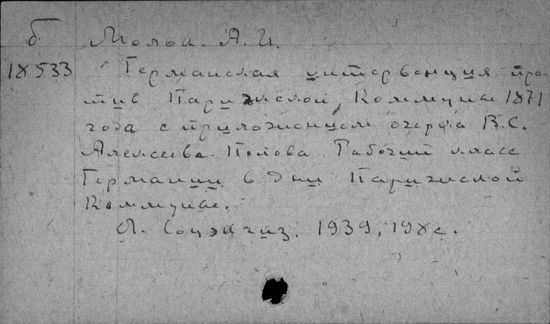 б Молок А.И.
18533 Германская интервенция про-
тив Парижской Коммуны 1871
года с приложением очерка В.С.
Алексеева-Попова Рабочий класс
Германии в дни Парижской
Коммуны.
Л. Соцэкгиз. 1939, 198с.